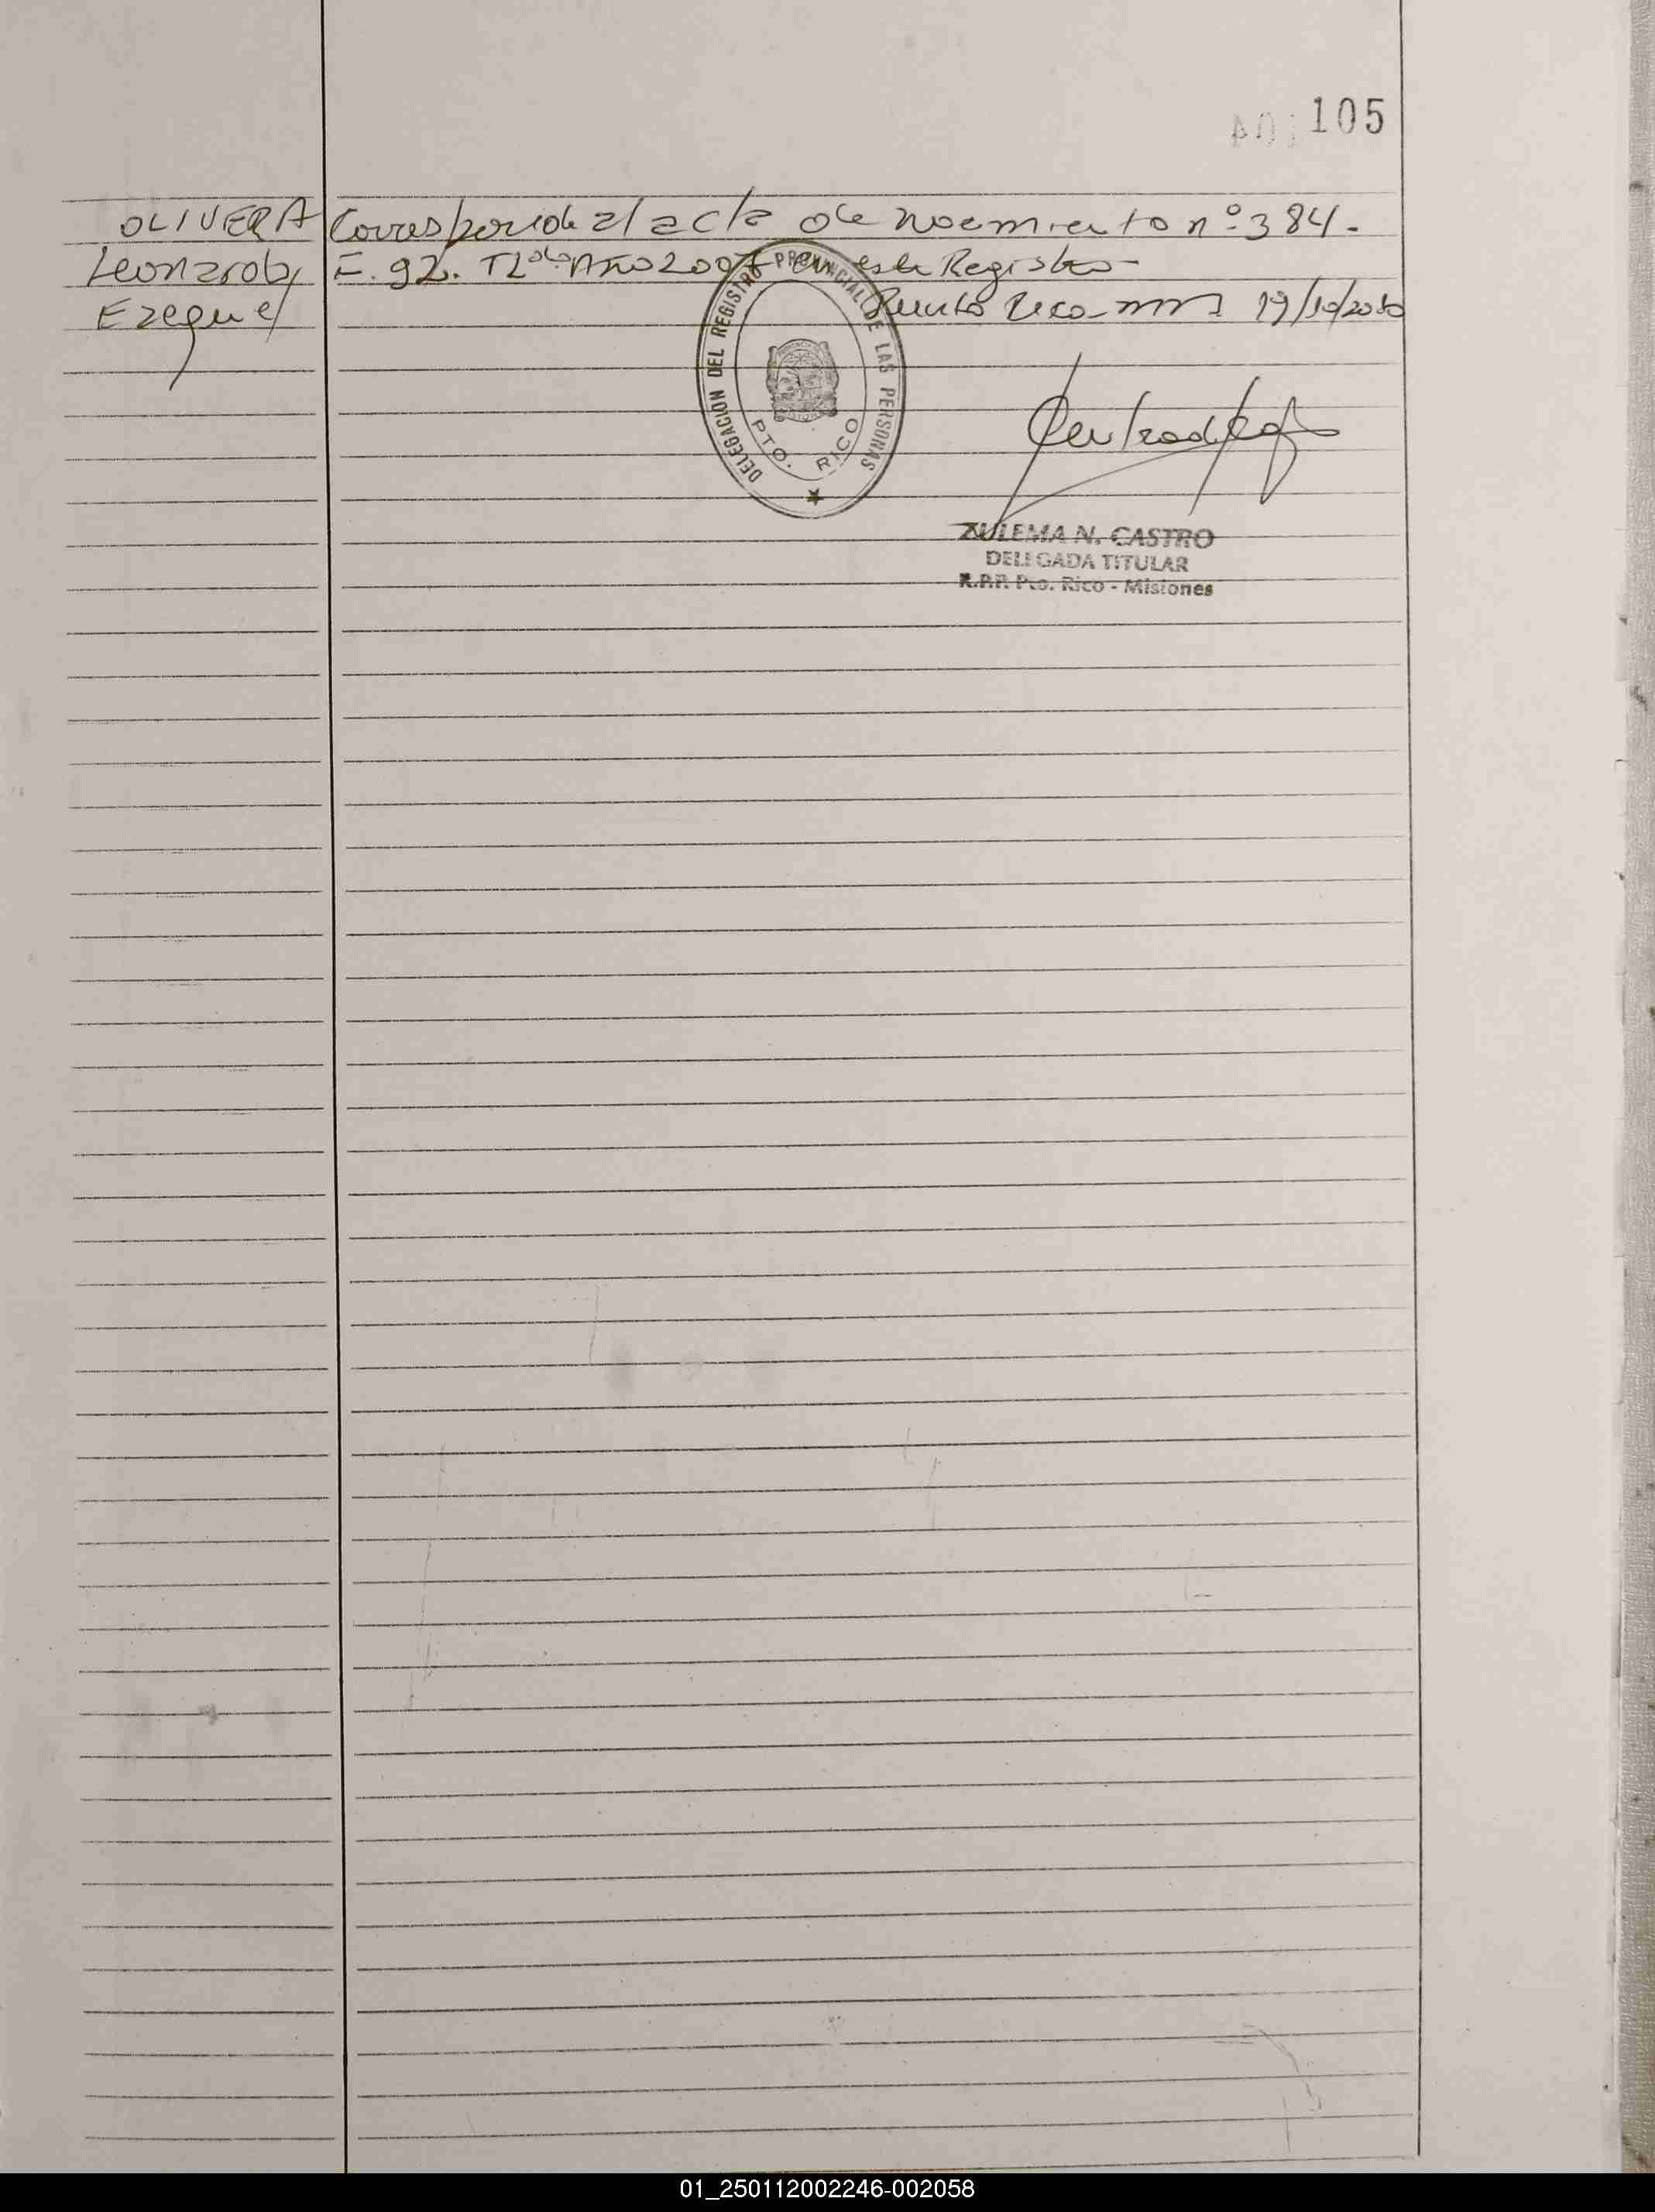 105
OLIVERA Corresponde al acta de nacimiento nº 384.
Leonardo F. 92. TL Año 2007 en este Registro-
Ezequiel Puerto Rico- mns 19/10/2010
DELEGACION DEL REGISTRO PROVINCIAL DE LAS PERSONAS
PTO. RICO
ZULEMA N. CASTRO
DELEGADA TITULAR
R.P.P. Pto. Rico - Misiones
01_250112002246-002058